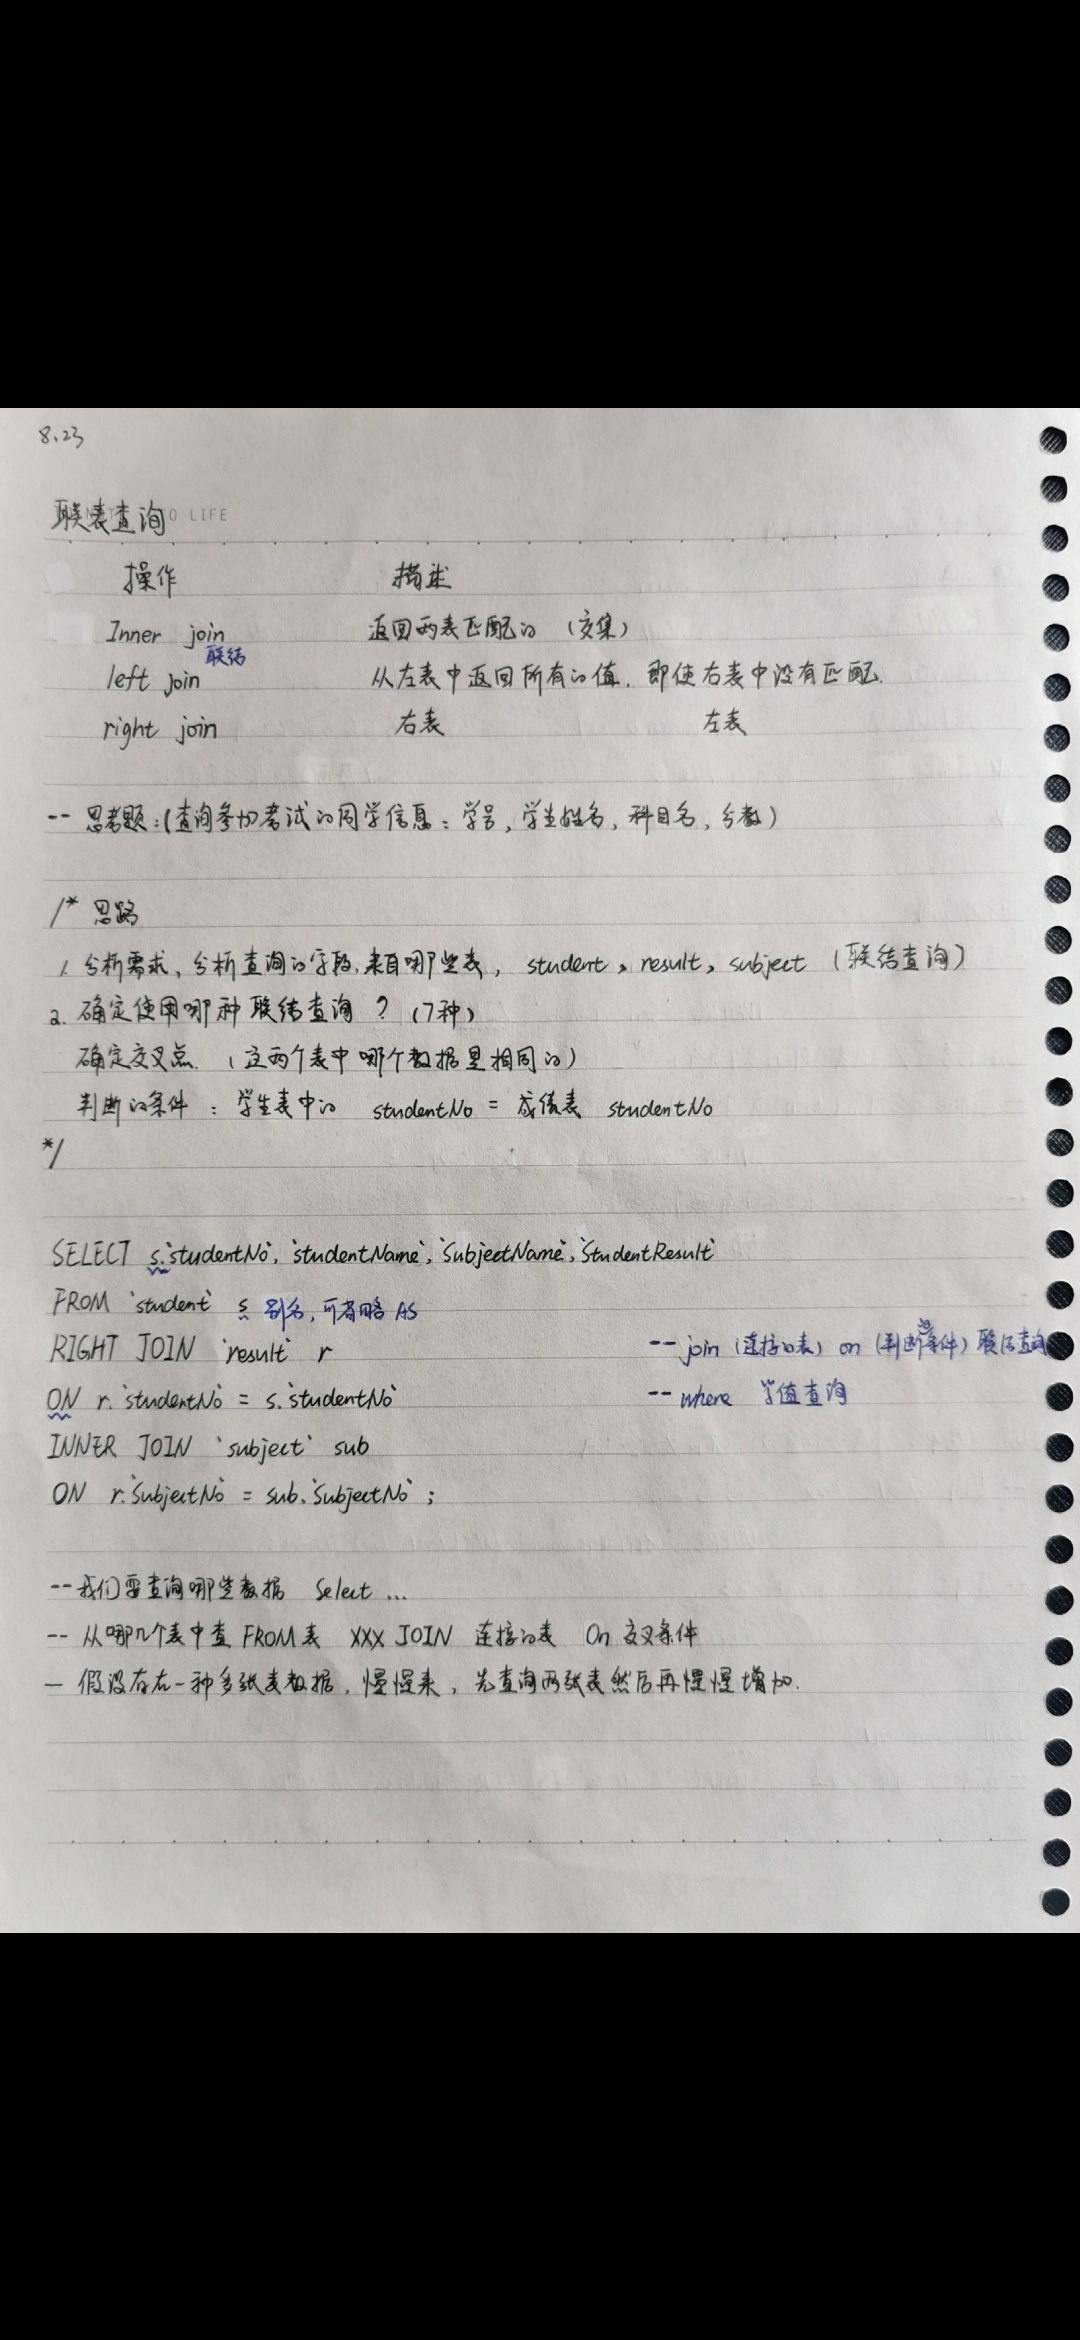 8.23
联表查询 O LIFE
操作 描述
Inner join 返回两表匹配的 (交集)
联结
left join 从左表中返回所有的值, 即使右表中没有匹配.
right join 右表 左表
-- 思考题:(查询参加考试的同学信息: 学号, 学生姓名, 科目名, 分数)
/* 思路
1. 分析需求, 分析查询的字段, 来自哪些表, student, result, subject (联结查询)
2. 确定使用哪种联结查询? (7种)
确定交叉点. (这两个表中哪个数据是相同的)
判断的条件: 学生表中的 studentNo = 成绩表 studentNo
*/
SELECT s.`studentNo`, `studentName`, `SubjectName`, `StudentResult`
FROM `student` s 别名, 可省略 AS
RIGHT JOIN `result` r -- join (连接的表) on (判断的条件) 联结查询
ON r.`studentNo` = s.`studentNo` -- where 等值查询
INNER JOIN `subject` sub
ON r.`SubjectNo` = sub.`SubjectNo`;
-- 我们要查询哪些数据 Select ...
-- 从哪几个表中查 FROM 表 XXX JOIN 连接的表 On 交叉条件
— 假设存在一种多张表数据, 慢慢来, 先查询两张表然后再慢慢增加.